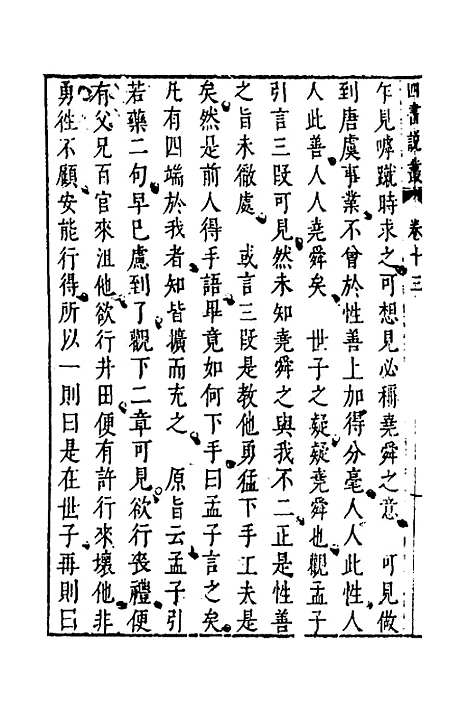 四書說叢 卷十三
乍見嘑蹴時求之可想見必稱堯舜之意 可見做
到唐虞事業不曾於性善上加得分毫人人此性人
人此善人人堯舜矣 世子之疑疑堯舜也觀孟子
引言三段可見然未知堯舜之與我不二正是性善
之旨未徹處 或言三段是教他勇猛下手工夫是
矣然是前人得手語畢竟如何下手曰孟子言之矣
凡有四端於我者知皆擴而充之 原旨云孟子引
若藥二句早已慮到了觀下二章可見欲行喪禮便
有父兄百官來沮他欲行井田便有許行來壞他非
勇徃不顧安能行得所以一則曰是在世子再則曰